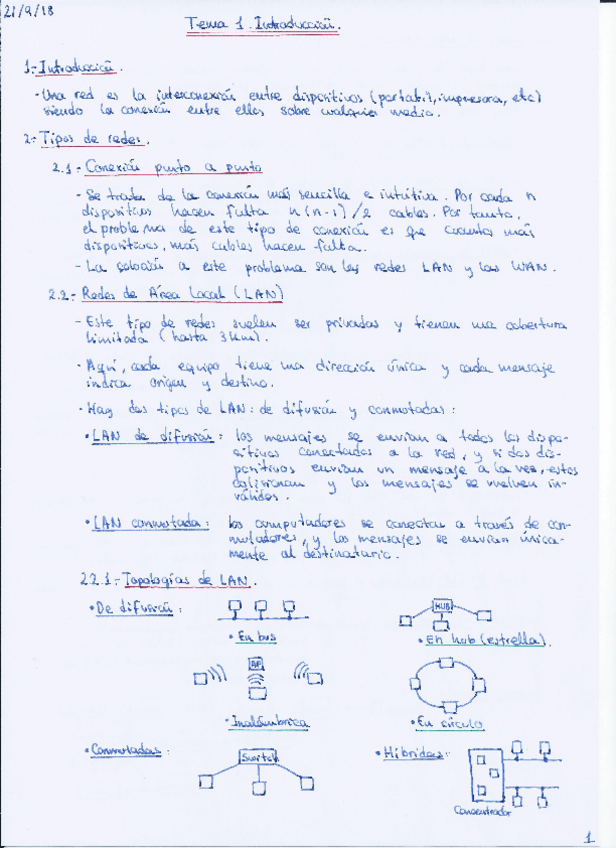 21/9/18
Tema 1. Introducción.
1.- Introducción.
- Una red es la interconexión entre dispositivos (portátil, impresora, etc)
siendo la conexión entre ellos sobre cualquier medio.
2.- Tipos de redes.
2.1.- Conexión punto a punto
- Se trata de la conexión más sencilla e intuitiva. Por cada n
dispositivos hacen falta n(n-1)/2 cables. Por tanto,
el problema de este tipo de conexión es que cuantos más
dispositivos, más cables hacen falta.
- La solución a este problema son las redes LAN y las WAN.
2.2.- Redes de Área Local (LAN)
- Este tipo de redes suelen ser privadas y tienen una cobertura
limitada (hasta 3km).
- Aquí, cada equipo tiene una dirección única y cada mensaje
indica origen y destino.
- Hay dos tipos de LAN: de difusión y conmutadas:
• LAN de difusión: los mensajes se envían a todos los dispo-
sitivos conectados a la red, y si dos dis-
positivos envían un mensaje a la vez, estos
colisionan y los mensajes se vuelven in-
válidos.
• LAN conmutada: los computadores se conectan a través de con-
mutadores, y los mensajes se envían única-
mente al destinatario.
2.2.1.- Topologías de LAN.
• De difusión:
HUB
• En bus
• En hub (estrella).
AP
• Inalámbrica
• En círculo
• Conmutadas:
Switch
• Híbridas:
Concentrador
1